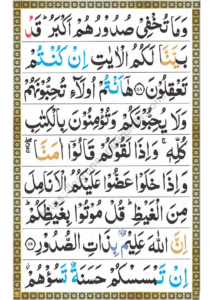 وَمَا تُخْفِيْ صُدُوْرُهُمْ اَكْبَرُؕ قَدْ
بَيَّنَّا لَكُمُ الْاٰيٰتِ اِنْ كُنْتُمْ
تَعْقِلُوْنَ ﴿۱۱۸﴾ هٰۤاَنْتُمْ اُولَآءِ تُحِبُّوْنَهُمْ
وَلَا يُحِبُّوْنَكُمْ وَتُؤْمِنُوْنَ بِالْكِتٰبِ
كُلِّهٖ ۚ وَاِذَا لَقُوْكُمْ قَالُوْۤا اٰمَنَّا ۖۚ
وَاِذَا خَلَوْا عَضُّوْا عَلَيْكُمُ الْاَنَامِلَ
مِنَ الْغَيْظِؕ قُلْ مُوْتُوْا بِغَيْظِكُمْؕ
اِنَّ اللّٰهَ عَلِيْمٌۢ بِذَاتِ الصُّدُوْرِ ﴿۱۱۹﴾
اِنْ تَمْسَسْكُمْ حَسَنَةٌ تَسُؤْهُمْ